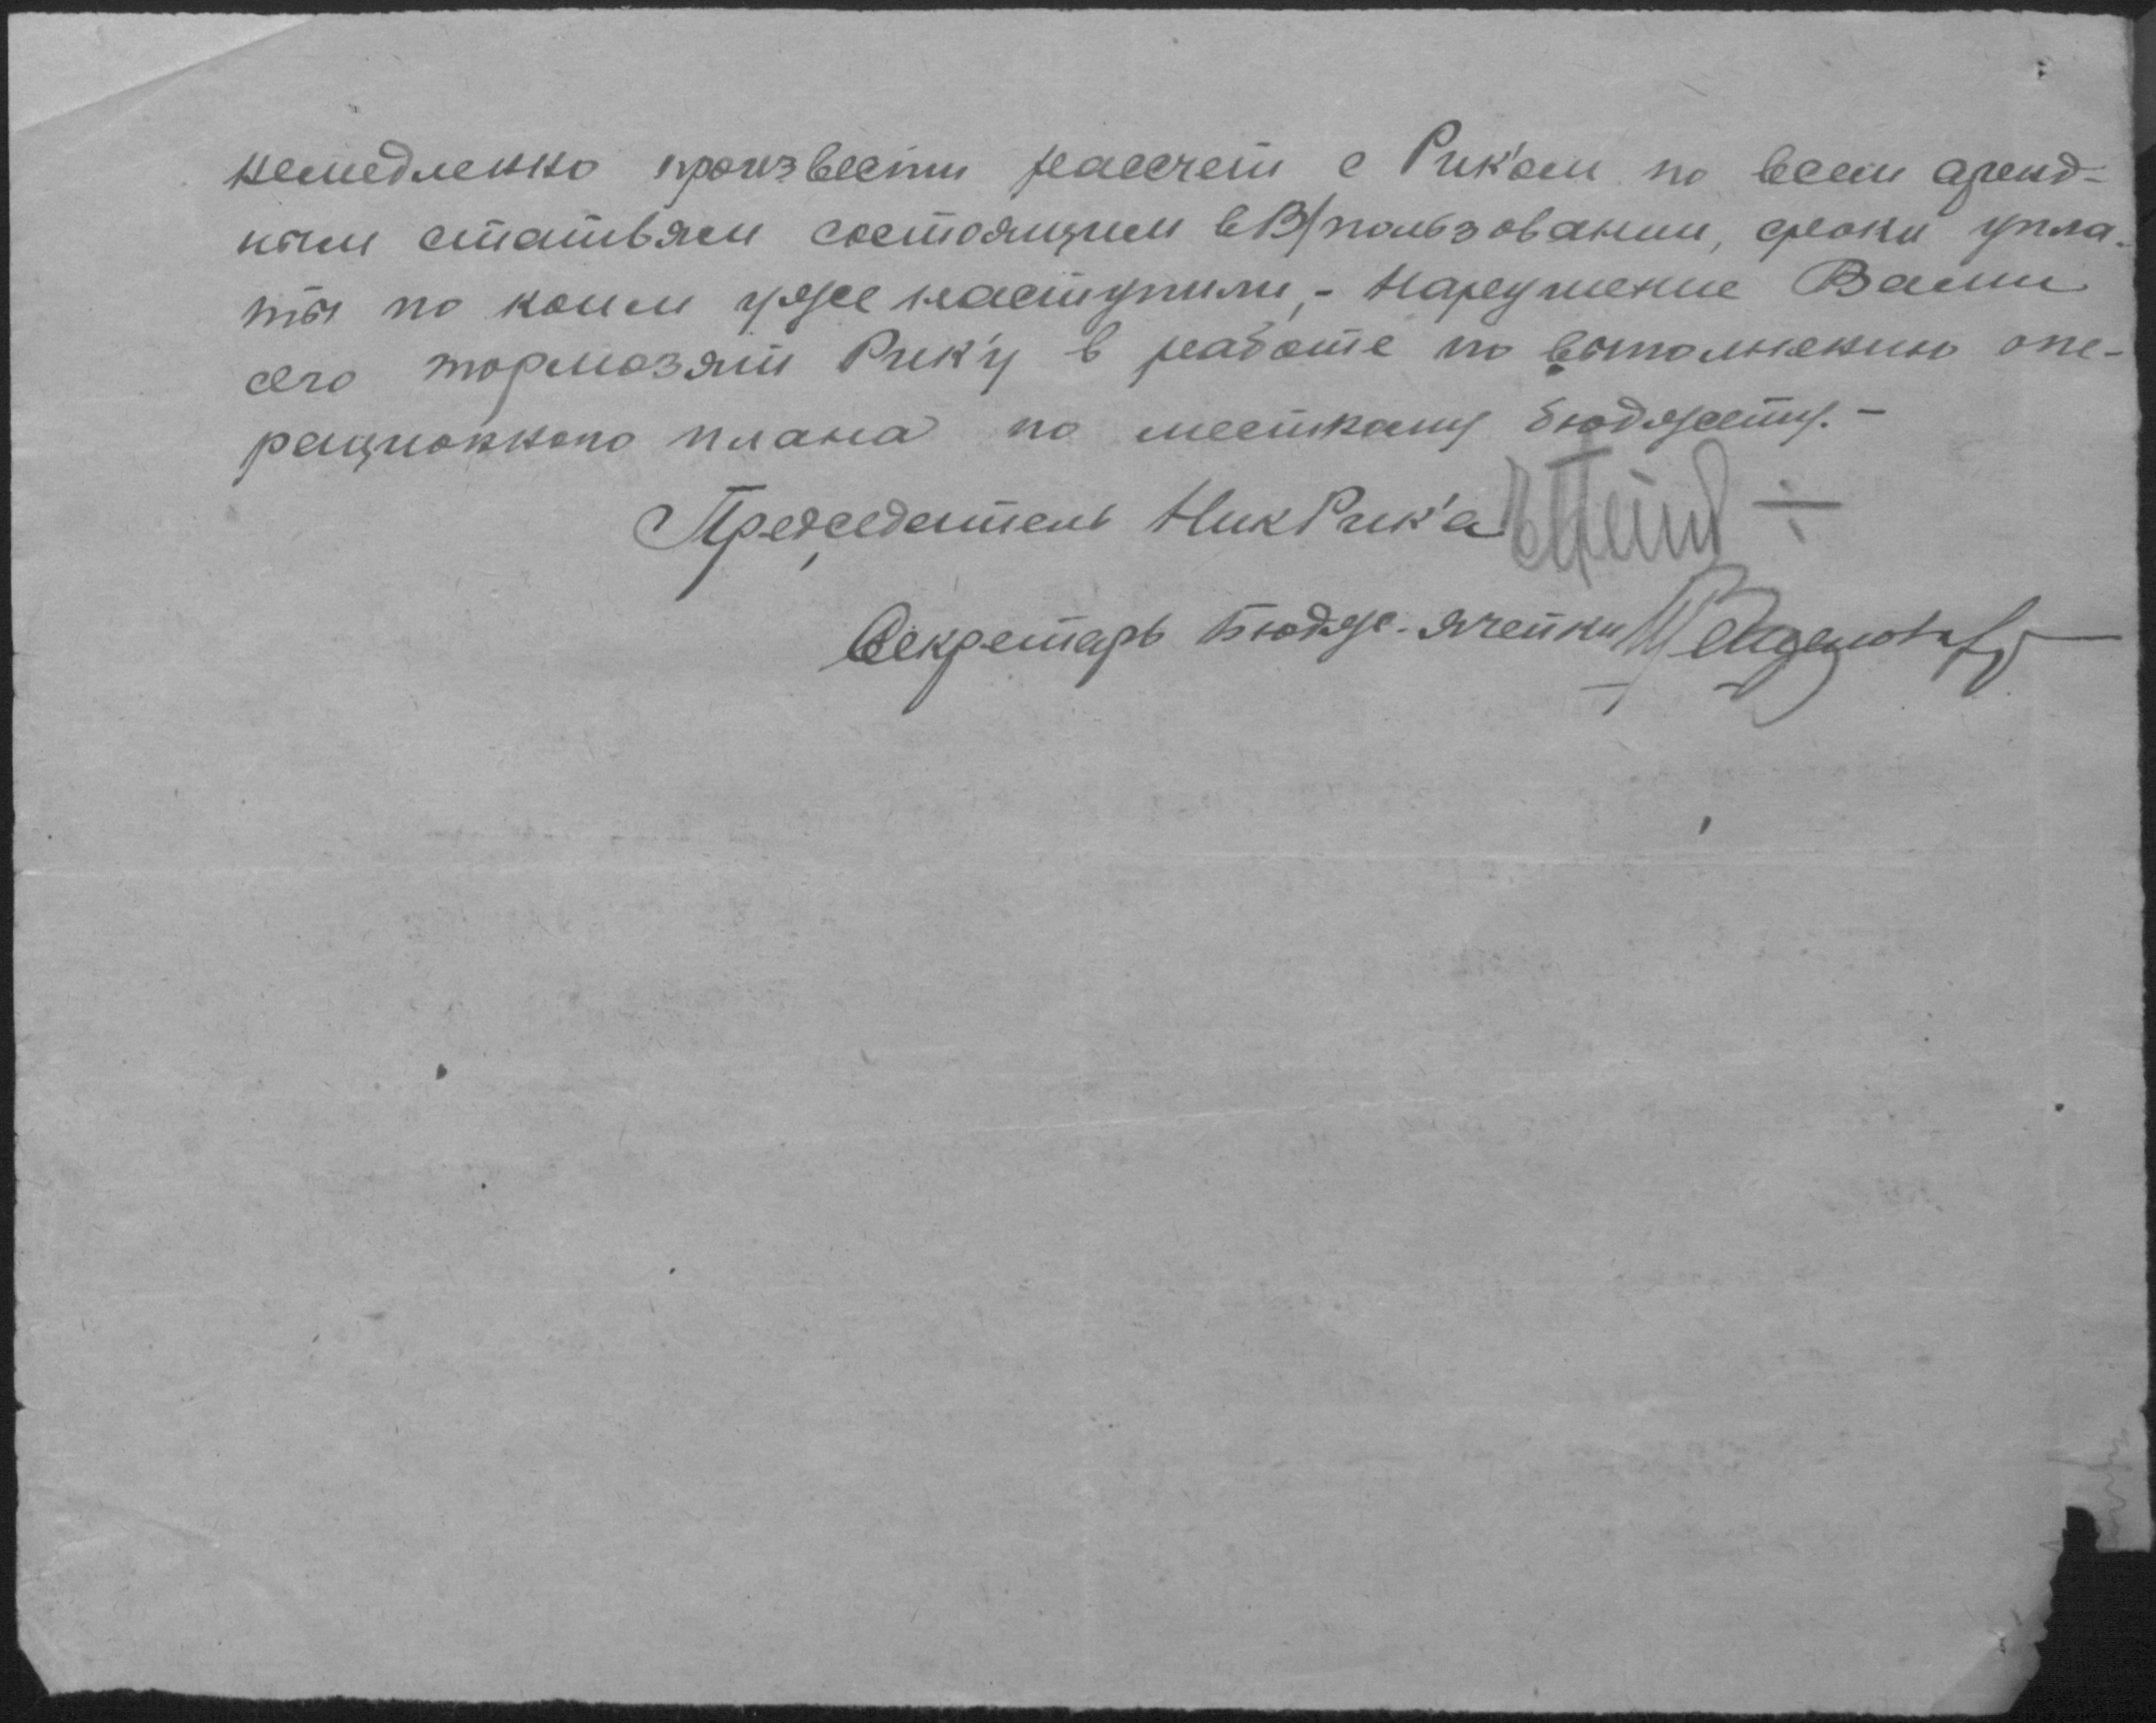 немедленно произвести рассчет с Рик'ом по всем аренд-
ным статьям состоящим в В/пользовании, сроки упла-
ты по коим уже наступили, - Нарушение Вами
сего тормозят Рик'у в работе по выполнению опе-
рационного плана по местному бюджету. -
Председатель НикРик'а
Секретарь Бюдж. ячейки